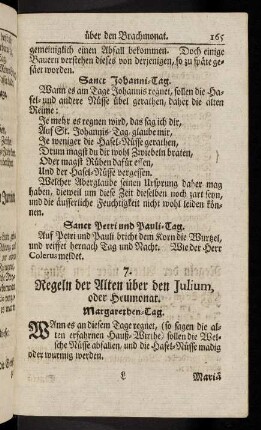 über den Brachmonat. 165
gemeiniglich einen Abfall bekommen. Doch einige
Bauern verstehen dieses von derjenigen, so zu späte ge-
säet worden.
Sanct Johanni-Tag.
Wann es am Tage Johannis regnet, sollen die Ha-
sel- und andere Nüsse übel gerathen, daher die alten
Reime:
Je mehr es regnen wird, das sag ich dir,
Auf St. Johannis Tag, glaube mir,
Je weniger die Hasel-Nüsse gerathen,
Drum magst du dir wohl Zwiebeln braten,
Oder magst Rüben dafür essen,
Und der Hasel-Nüsse vergessen.
Welcher Aberglaube seinen Ursprung daher mag
haben, dieweil um diese Zeit dieselben noch zart seyn,
und die äusserliche Feuchtigkeit nicht wohl leiden kön-
nen.
Sanct Petri und Pauli-Tag.
Auf Petri und Pauli bricht dem Korn die Wurtzel,
und reiffet hernach Tag und Nacht. Wie der Herr
Colerus meldet.
Regeln der Alten über den Julium,
oder Heumonat.
Margarethen-Tag.
Wann es an diesem Tage regnet, (so sagen die al-
ten erfahrnen Hauß-Wirthe) sollen die Wel-
sche Nüsse abfallen, und die Hasel-Nüsse madig
oder wurmig werden.
L Mariä